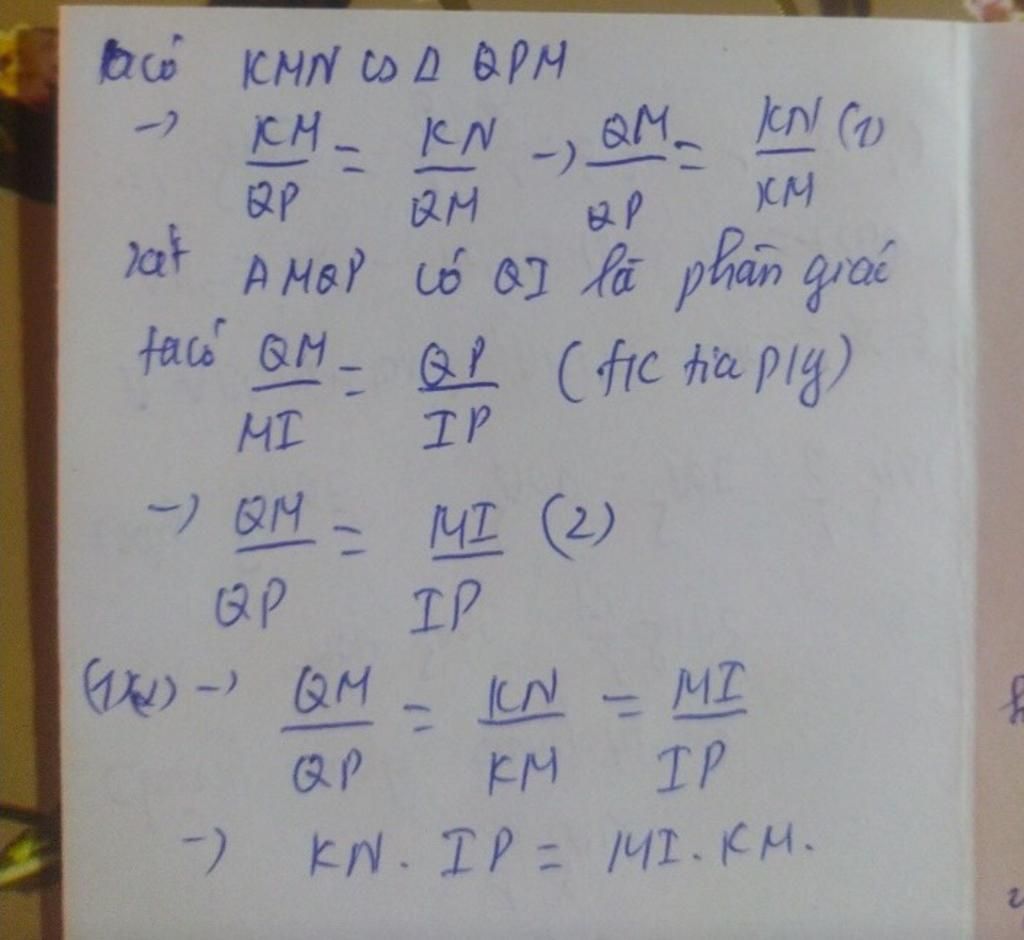 ta có KMN ∽ Δ QPM
→ KM/QP = KN/QM → QM/QP = KN/KM (1)
xét Δ MQP có QI là phân giác
ta có QM/MI = QP/IP (t/c tia p/g)
→ QM/QP = MI/IP (2)
(1)(2) → QM/QP = KN/KM = MI/IP
→ KN . IP = MI . KM.